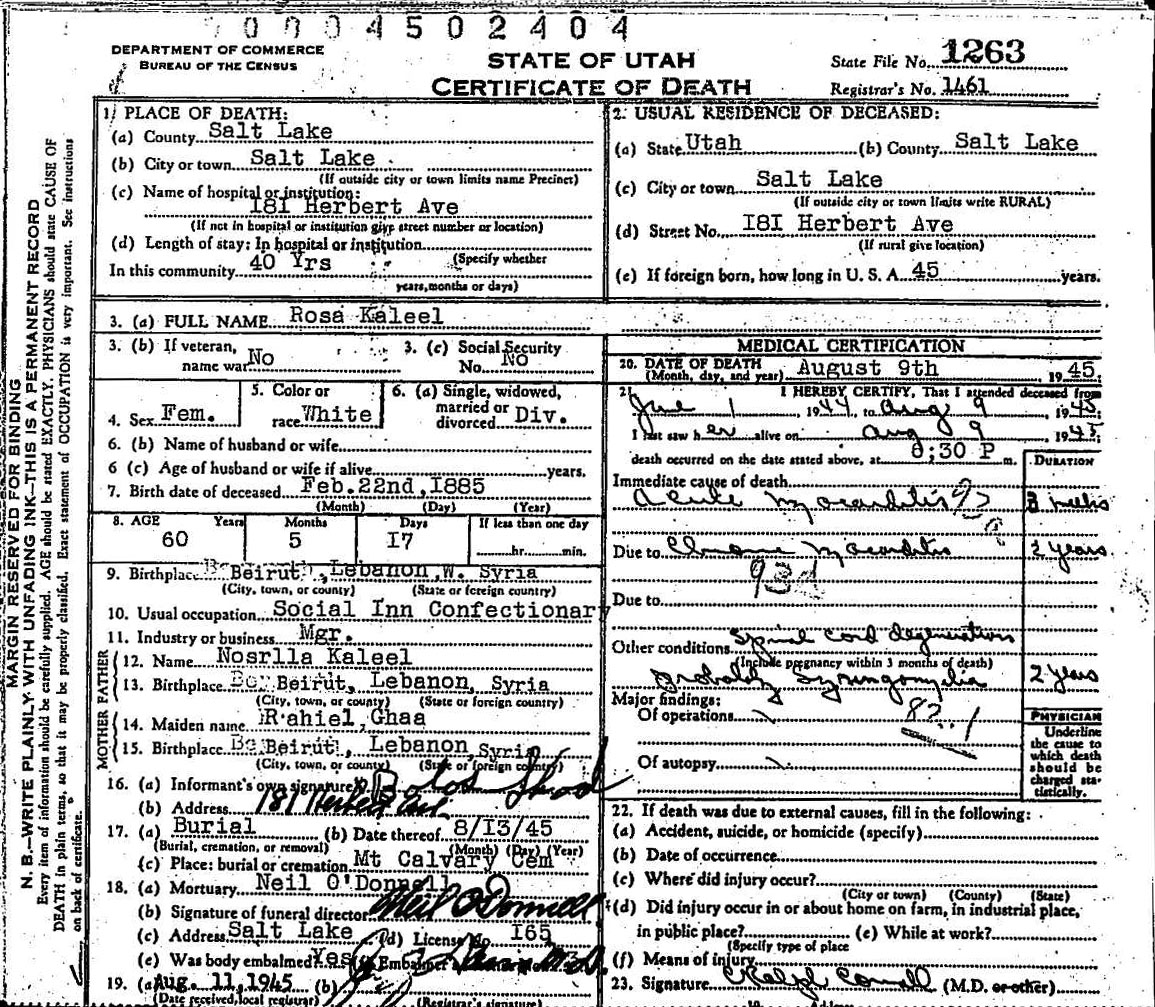 0004502404
DEPARTMENT OF COMMERCE
BUREAU OF THE CENSUS
STATE OF UTAH
CERTIFICATE OF DEATH
State File No. 1263
Registrar's No. 1461
MARGIN RESERVED FOR BINDING
N. B.—WRITE PLAINLY, WITH UNFADING INK—THIS IS A PERMANENT RECORD
Every item of information should be carefully supplied. AGE should be stated EXACTLY. PHYSICIANS should state CAUSE OF
DEATH in plain terms, so that it may be properly classified. Exact statement of OCCUPATION is very important. See instructions
on back of certificate.
1. PLACE OF DEATH:
(a) County Salt Lake
(b) City or town Salt Lake
(If outside city or town limits name Precinct)
(c) Name of hospital or institution:
181 Herbert Ave
(If not in hospital or institution give street number or location)
(d) Length of stay: In hospital or institution
(Specify whether
In this community 40 Yrs
years, months or days)
2. USUAL RESIDENCE OF DECEASED:
(a) State Utah (b) County Salt Lake
(c) City or town Salt Lake
(If outside city or town limits write RURAL)
(d) Street No. 181 Herbert Ave
(If rural give location)
(e) If foreign born, how long in U. S. A. 45 years.
3. (a) FULL NAME Rosa Kaleel
3. (b) If veteran,
name war No
3. (c) Social Security
No. No
4. Sex Fem.
5. Color or
race White
6. (a) Single, widowed,
married or
divorced Div.
6. (b) Name of husband or wife
6 (c) Age of husband or wife if alive years.
7. Birth date of deceased Feb. 22nd, 1885
(Month) (Day) (Year)
8. AGE Years Months Days If less than one day
60 5 17 hr. min.
9. Birthplace Beirut, Lebanon, W. Syria
(City, town, or county) (State or foreign country)
10. Usual occupation Social Inn Confectionary
11. Industry or business Mgr.
FATHER
12. Name Nosrlla Kaleel
13. Birthplace Beirut, Lebanon, Syria
(City, town, or county) (State or foreign country)
MOTHER
14. Maiden name Rahiel, Ghaa
15. Birthplace Beirut, Lebanon Syria
(City, town, or county) (State or foreign country)
16. (a) Informant's own signature
(b) Address 181 Herbert Ave.
17. (a) Burial (b) Date thereof 8/13/45
(Burial, cremation, or removal) (Month) (Day) (Year)
(c) Place: burial or cremation Mt Calvary Cem
18. (a) Mortuary Neil O'Donnell
(b) Signature of funeral director Neil O'Donnell
(c) Address Salt Lake (d) License No. 165
(e) Was body embalmed? Yes (f) Embalmer
19. (a) Aug. 11, 1945 (b)
(Date received, local registrar) (Registrar's signature)
MEDICAL CERTIFICATION
20. DATE OF DEATH August 9th 1945
(Month, day, and year)
21. I HEREBY CERTIFY, That I attended deceased from
June 1 1944, to Aug 9, 1945;
I last saw her alive on Aug 9 1945;
death occurred on the date stated above, at 8:30 P m.
DURATION
Immediate cause of death
Acute Myocarditis 3 weeks
Due to Chronic Myocarditis 2 years
93d
Due to
Other conditions Spinal cord degeneration
(Include pregnancy within 3 months of death)
Probably Syringomyelia 2 years
Major findings:
Of operations
Of autopsy
PHYSICIAN
Underline
the cause to
which death
should be
charged sta-
tistically.
22. If death was due to external causes, fill in the following:
(a) Accident, suicide, or homicide (specify)
(b) Date of occurrence
(c) Where did injury occur?
(City or town) (County) (State)
(d) Did injury occur in or about home on farm, in industrial place,
in public place? (e) While at work?
(Specify type of place
(f) Means of injury
23. Signature Ralph (M.D. or other)